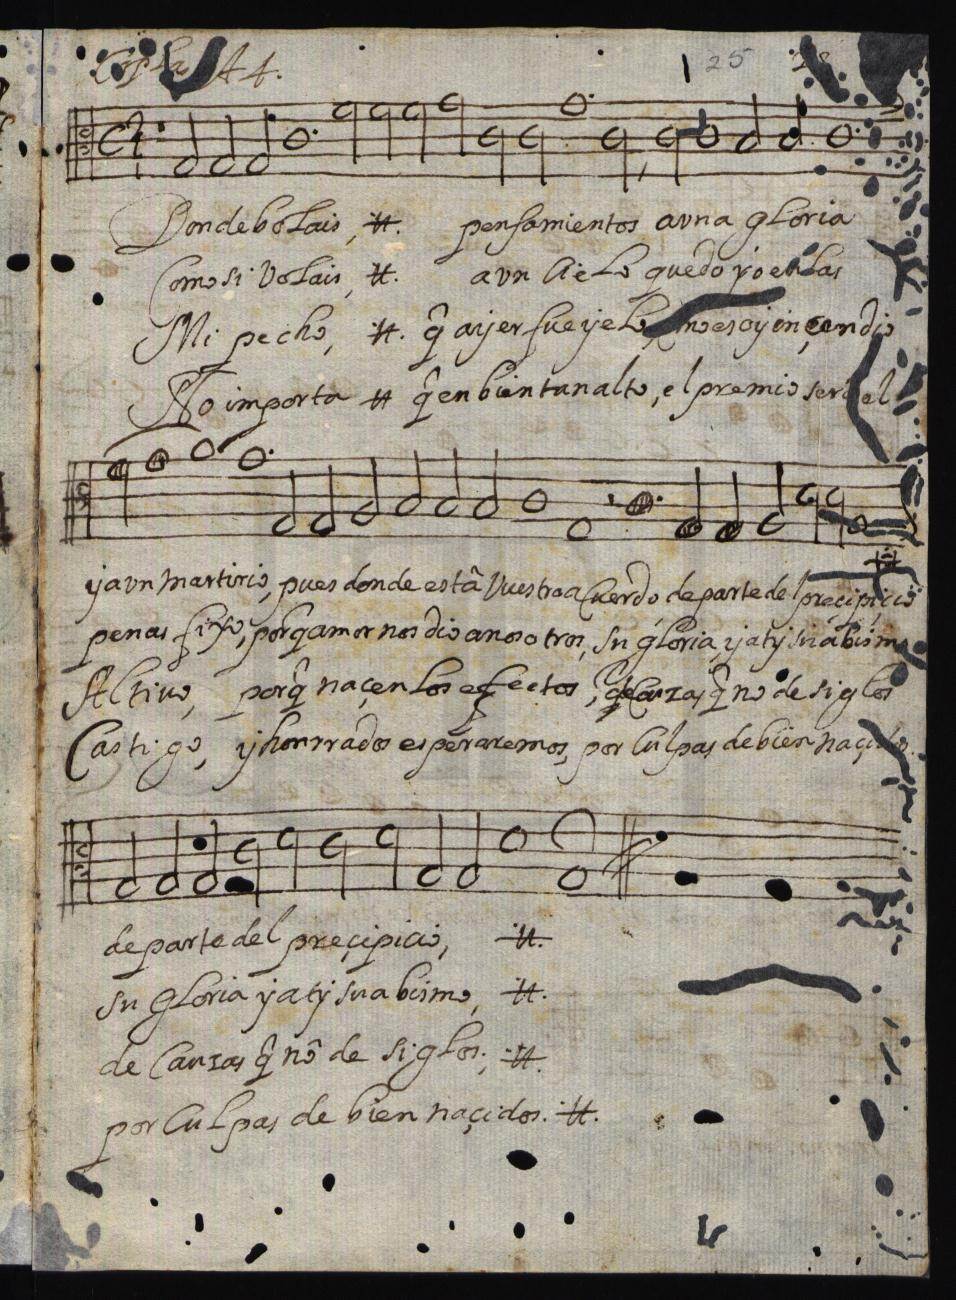 Copla A 4.
25
Donde bolais, ii. pensamientos a vna gloria
Como si Volais, ii. a vn cielo quedo yo en las
Mi pecho, ii. q̂ aijer fue ijelo, no es oy inçendio
No importa ii q̂ en bien tan alto, el premio será el
y a vn martirio, pues donde estâ Vuestro acuerdo de parte del preçipiçio
penas fixo, porq̂ amor nos dio a nosotros, su gloria y a ty su abismo
Altiuo, porq̂ naçen los efectos, de cauzas q̂ no de siglos
Castigo, y honrrados esperaremos, por culpas de bien naçidos.
de parte del preçipiçio, ii.
su gloria y a ty su abismo, ii.
de cauzas q̂ nô de siglos, ii.
por culpas de bien naçidos. ii.